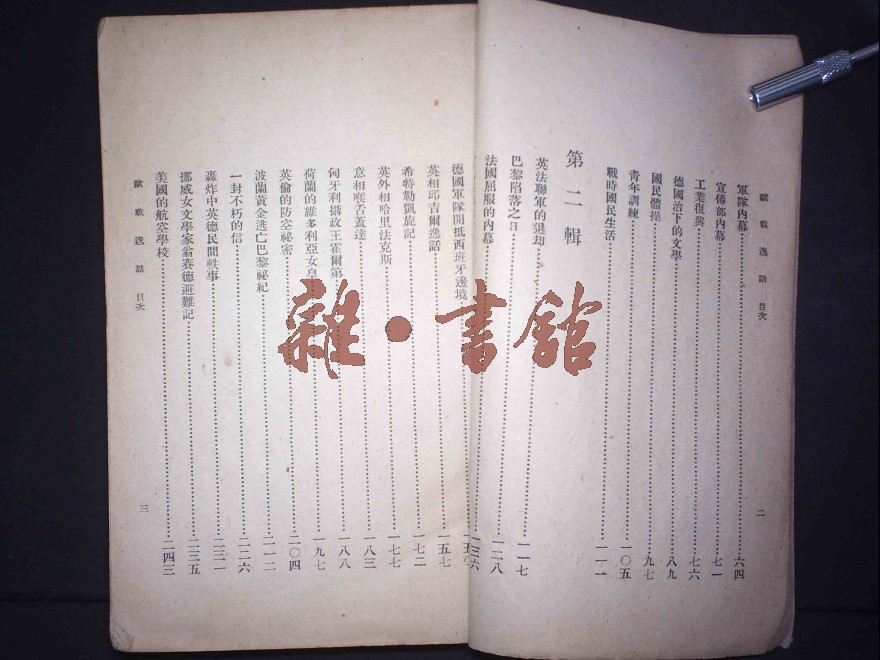 歐戰逸話 目次
軍隊內幕 六四
宣傳部內幕 七一
工業復興 七六
德國治下的文學 八九
國民體操 九七
青年訓練 一〇五
戰時國民生活 一一一
第二輯
英法聯軍的退却 一一七
巴黎陷落之日 一二八
法國屈服的內幕 一三六
德國軍隊開抵西班牙邊境 一五〇
英相邱吉爾逸話 一五七
希特勒凱旋記 一七二
英外相哈里法克斯 一七七
意相喉舌蓋達 一八三
匈牙利攝政王霍爾第 一八八
荷蘭的維多利亞女皇 一九七
英倫的防空祕密 二〇四
波蘭黃金逃亡巴黎祕紀 二一二
一封不朽的信 二二六
轟炸中英德民間軼事 二三一
挪威女文學家翁賽德避難記 二三五
美國的航空學校 二四三
歐戰逸話 目次
二
三
雜·書館